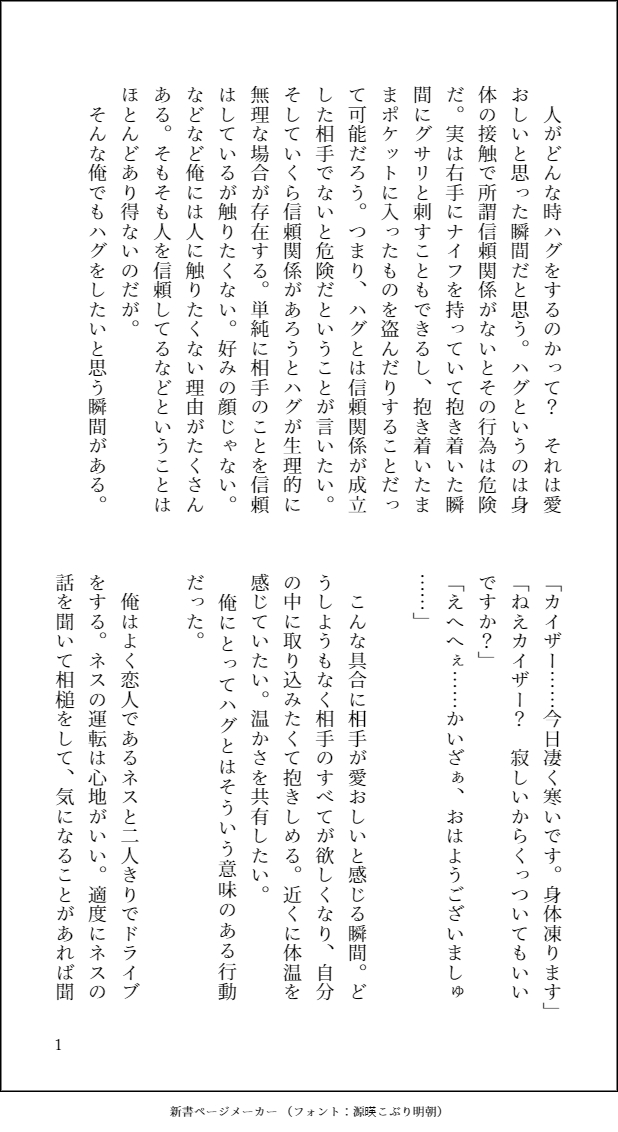 人がどんな時ハグをするのかって？　それは愛
おしいと思った瞬間だと思う。ハグというのは身
体の接触で所謂信頼関係がないとその行為は危険
だ。実は右手にナイフを持っていて抱き着いた瞬
間にグサリと刺すこともできるし、抱き着いたま
まポケットに入ったものを盗んだりすることだっ
て可能だろう。つまり、ハグとは信頼関係が成立
した相手でないと危険だということが言いたい。
そしていくら信頼関係があろうとハグが生理的に
無理な場合が存在する。単純に相手のことを信頼
はしているが触りたくない。好みの顔じゃない。
などなど俺には人に触りたくない理由がたくさん
ある。そもそも人を信頼してるなどということは
ほとんどあり得ないのだが。
　そんな俺でもハグをしたいと思う瞬間がある。
「カイザー……今日凄く寒いです。身体凍ります」
「ねえカイザー？　寂しいからくっついてもいい
ですか？」
「えへへぇ……かいざぁ、おはようございましゅ
……」
　こんな具合に相手が愛おしいと感じる瞬間。ど
うしようもなく相手のすべてが欲しくなり、自分
の中に取り込みたくて抱きしめる。近くに体温を
感じていたい。温かさを共有したい。
　俺にとってハグとはそういう意味のある行動
だった。
　俺はよく恋人であるネスと二人きりでドライブ
をする。ネスの運転は心地がいい。適度にネスの
話を聞いて相槌をして、気になることがあれば聞
1
新書ページメーカー（フォント：源暎こぶり明朝）